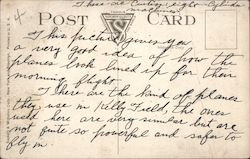 4
These are Curtiss eight-Cylinder
machines
POST CARD
This picture gives you
a very good idea of how the
planes look lined up for their
morning flight.
These are the kind of planes
they use in Kelly Field, the ones
used here are very similar but are
not quite so powerful and safer to
fly in.